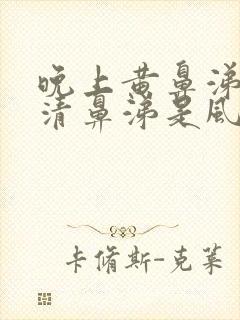 晚上黄鼻涕
清鼻涕是风
卡脩斯-克莱